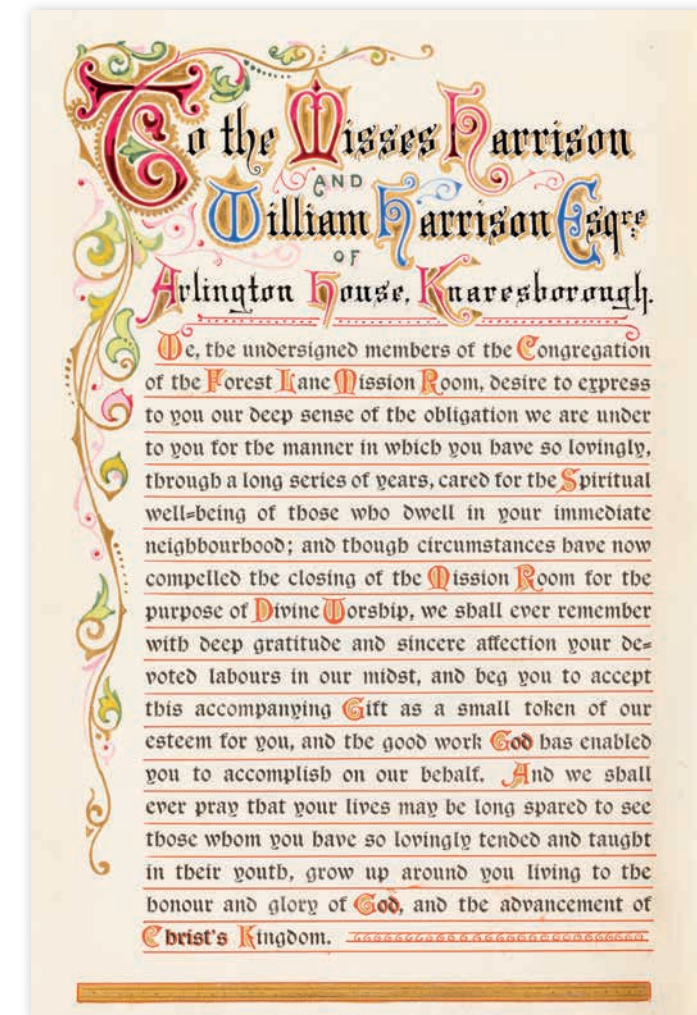 To the Misses Harrison
AND
William Harrison Esqre
OF
Arlington House, Knaresborough.
We, the undersigned members of the Congregation
of the Forest Lane Mission Room, desire to express
to you our deep sense of the obligation we are under
to you for the manner in which you have so lovingly,
through a long series of years, cared for the Spiritual
well=being of those who dwell in your immediate
neighbourhood; and though circumstances have now
compelled the closing of the Mission Room for the
purpose of Divine Worship, we shall ever remember
with deep gratitude and sincere affection your de=
voted labours in our midst, and beg you to accept
this accompanying Gift as a small token of our
esteem for you, and the good work God has enabled
you to accomplish on our behalf. And we shall
ever pray that your lives may be long spared to see
those whom you have so lovingly tended and taught
in their youth, grow up around you living to the
honour and glory of God, and the advancement of
Christ's Kingdom.